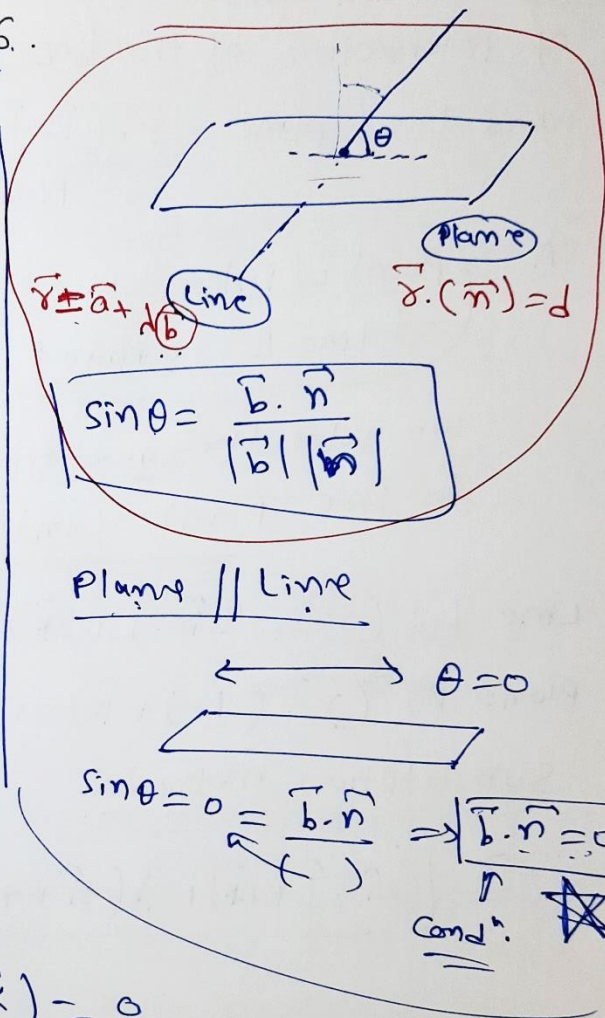 6.
θ
Plane
Line
r⃗ = a⃗ + λb⃗
r⃗.(n⃗) = d
sinθ = b⃗.n⃗ / |b⃗| |n⃗|
Plane || Line
θ = 0
sinθ = 0 = b⃗.n⃗ / ( ) ⇒ b⃗.n⃗ = 0
Condⁿ.
) = 0